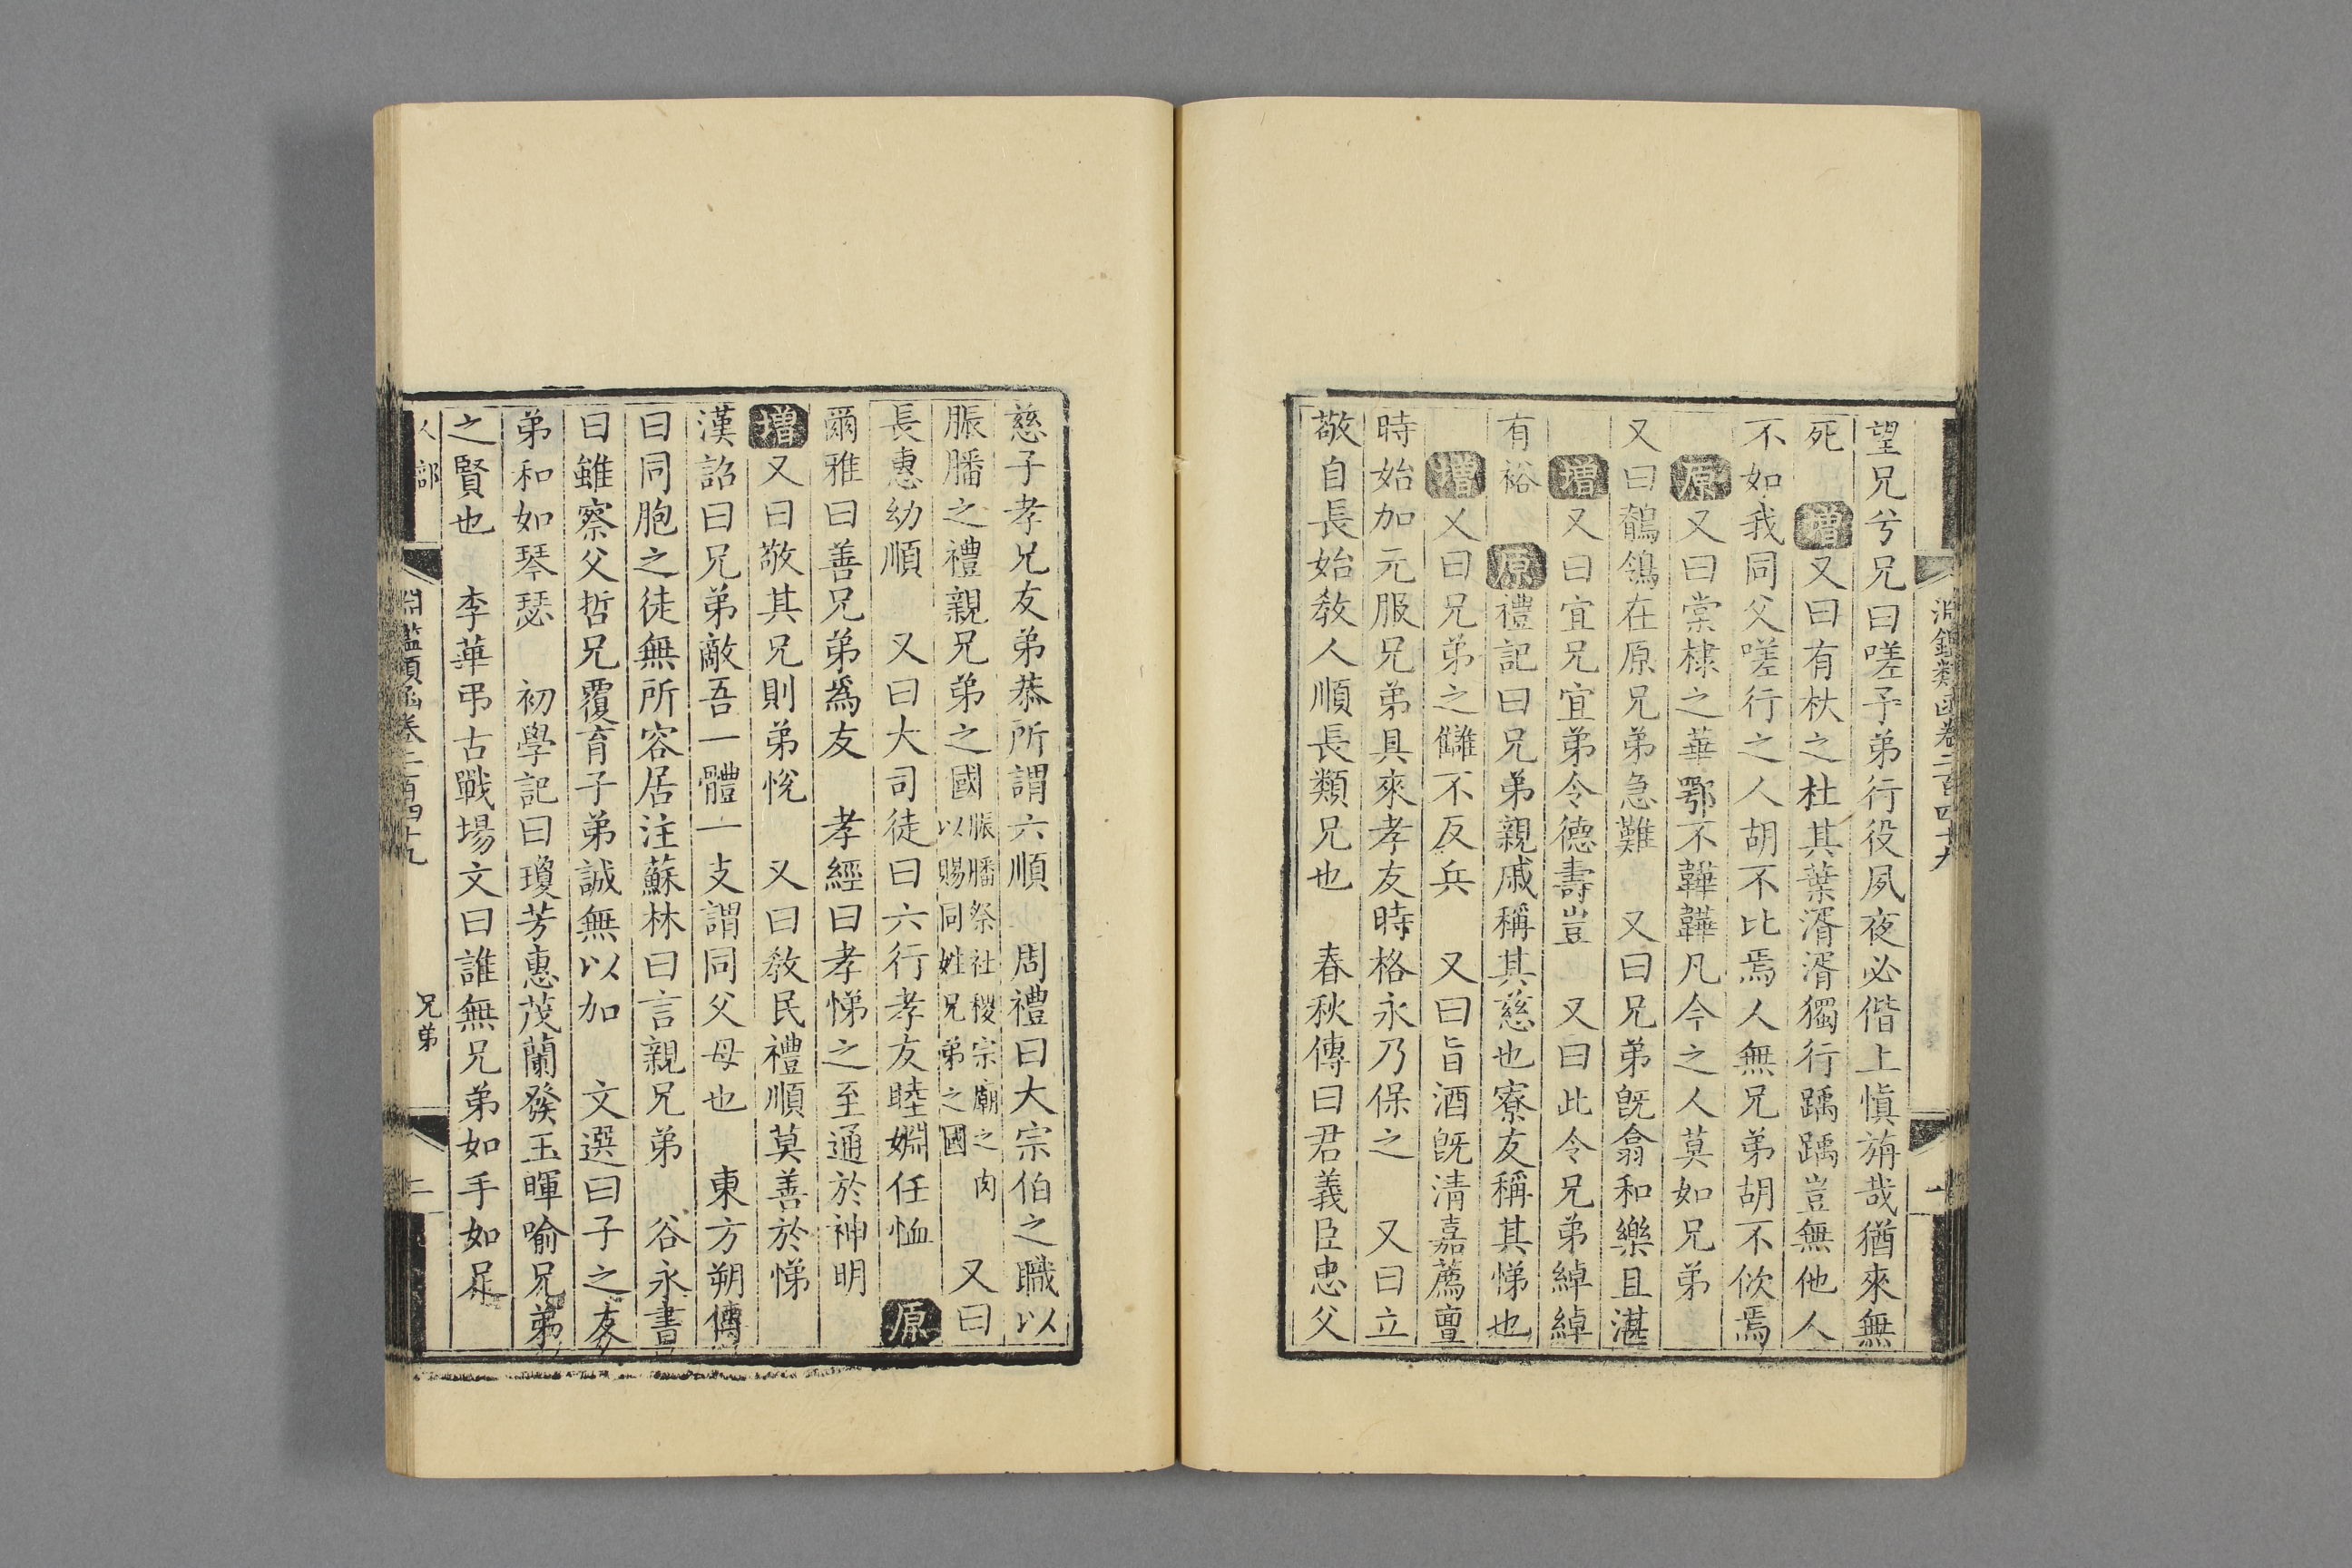 淵鑑類函卷二百四十九
一
望兄兮兄曰嗟予弟行役夙夜必偕上慎旃哉猶來無
死　增又曰有杕之杜其葉湑湑獨行踽踽豈無他人
不如我同父嗟行之人胡不比焉人無兄弟胡不佽焉
原又曰棠棣之華鄂不韡韡凡今之人莫如兄弟
又曰鶺鴒在原兄弟急難　又曰兄弟旣翕和樂且湛
增又曰宜兄宜弟令德壽豈　又曰此令兄弟綽綽
有裕　原禮記曰兄弟親戚稱其慈也寮友稱其悌也
增又曰兄弟之讎不反兵　又曰旨酒旣清嘉薦亶
時始加元服兄弟具來孝友時格永乃保之　又曰立
敬自長始敎人順長類兄也　春秋傳曰君義臣忠父
慈子孝兄友弟恭所謂六順　周禮曰大宗伯之職以
脤膰之禮親兄弟之國脤膰祭社稷宗廟之肉以賜同姓兄弟之國　又曰
長惠幼順　又曰大司徒曰六行孝友睦婣任恤　原
爾雅曰善兄弟爲友　孝經曰孝悌之至通於神明
增又曰敬其兄則弟悅　又曰敎民禮順莫善於悌
漢詔曰兄弟敵吾一體一支謂同父母也　東方朔傳
曰同胞之徒無所容居注蘇林曰言親兄弟　谷永書
曰雖察父哲兄覆育子弟誠無以加　文選曰子之友
弟和如琴瑟　初學記曰瓊芳惠茂蘭發玉暉喻兄弟
之賢也　李華弔古戰場文曰誰無兄弟如手如足
人部　淵鑑類函卷二百四十九　兄弟　二